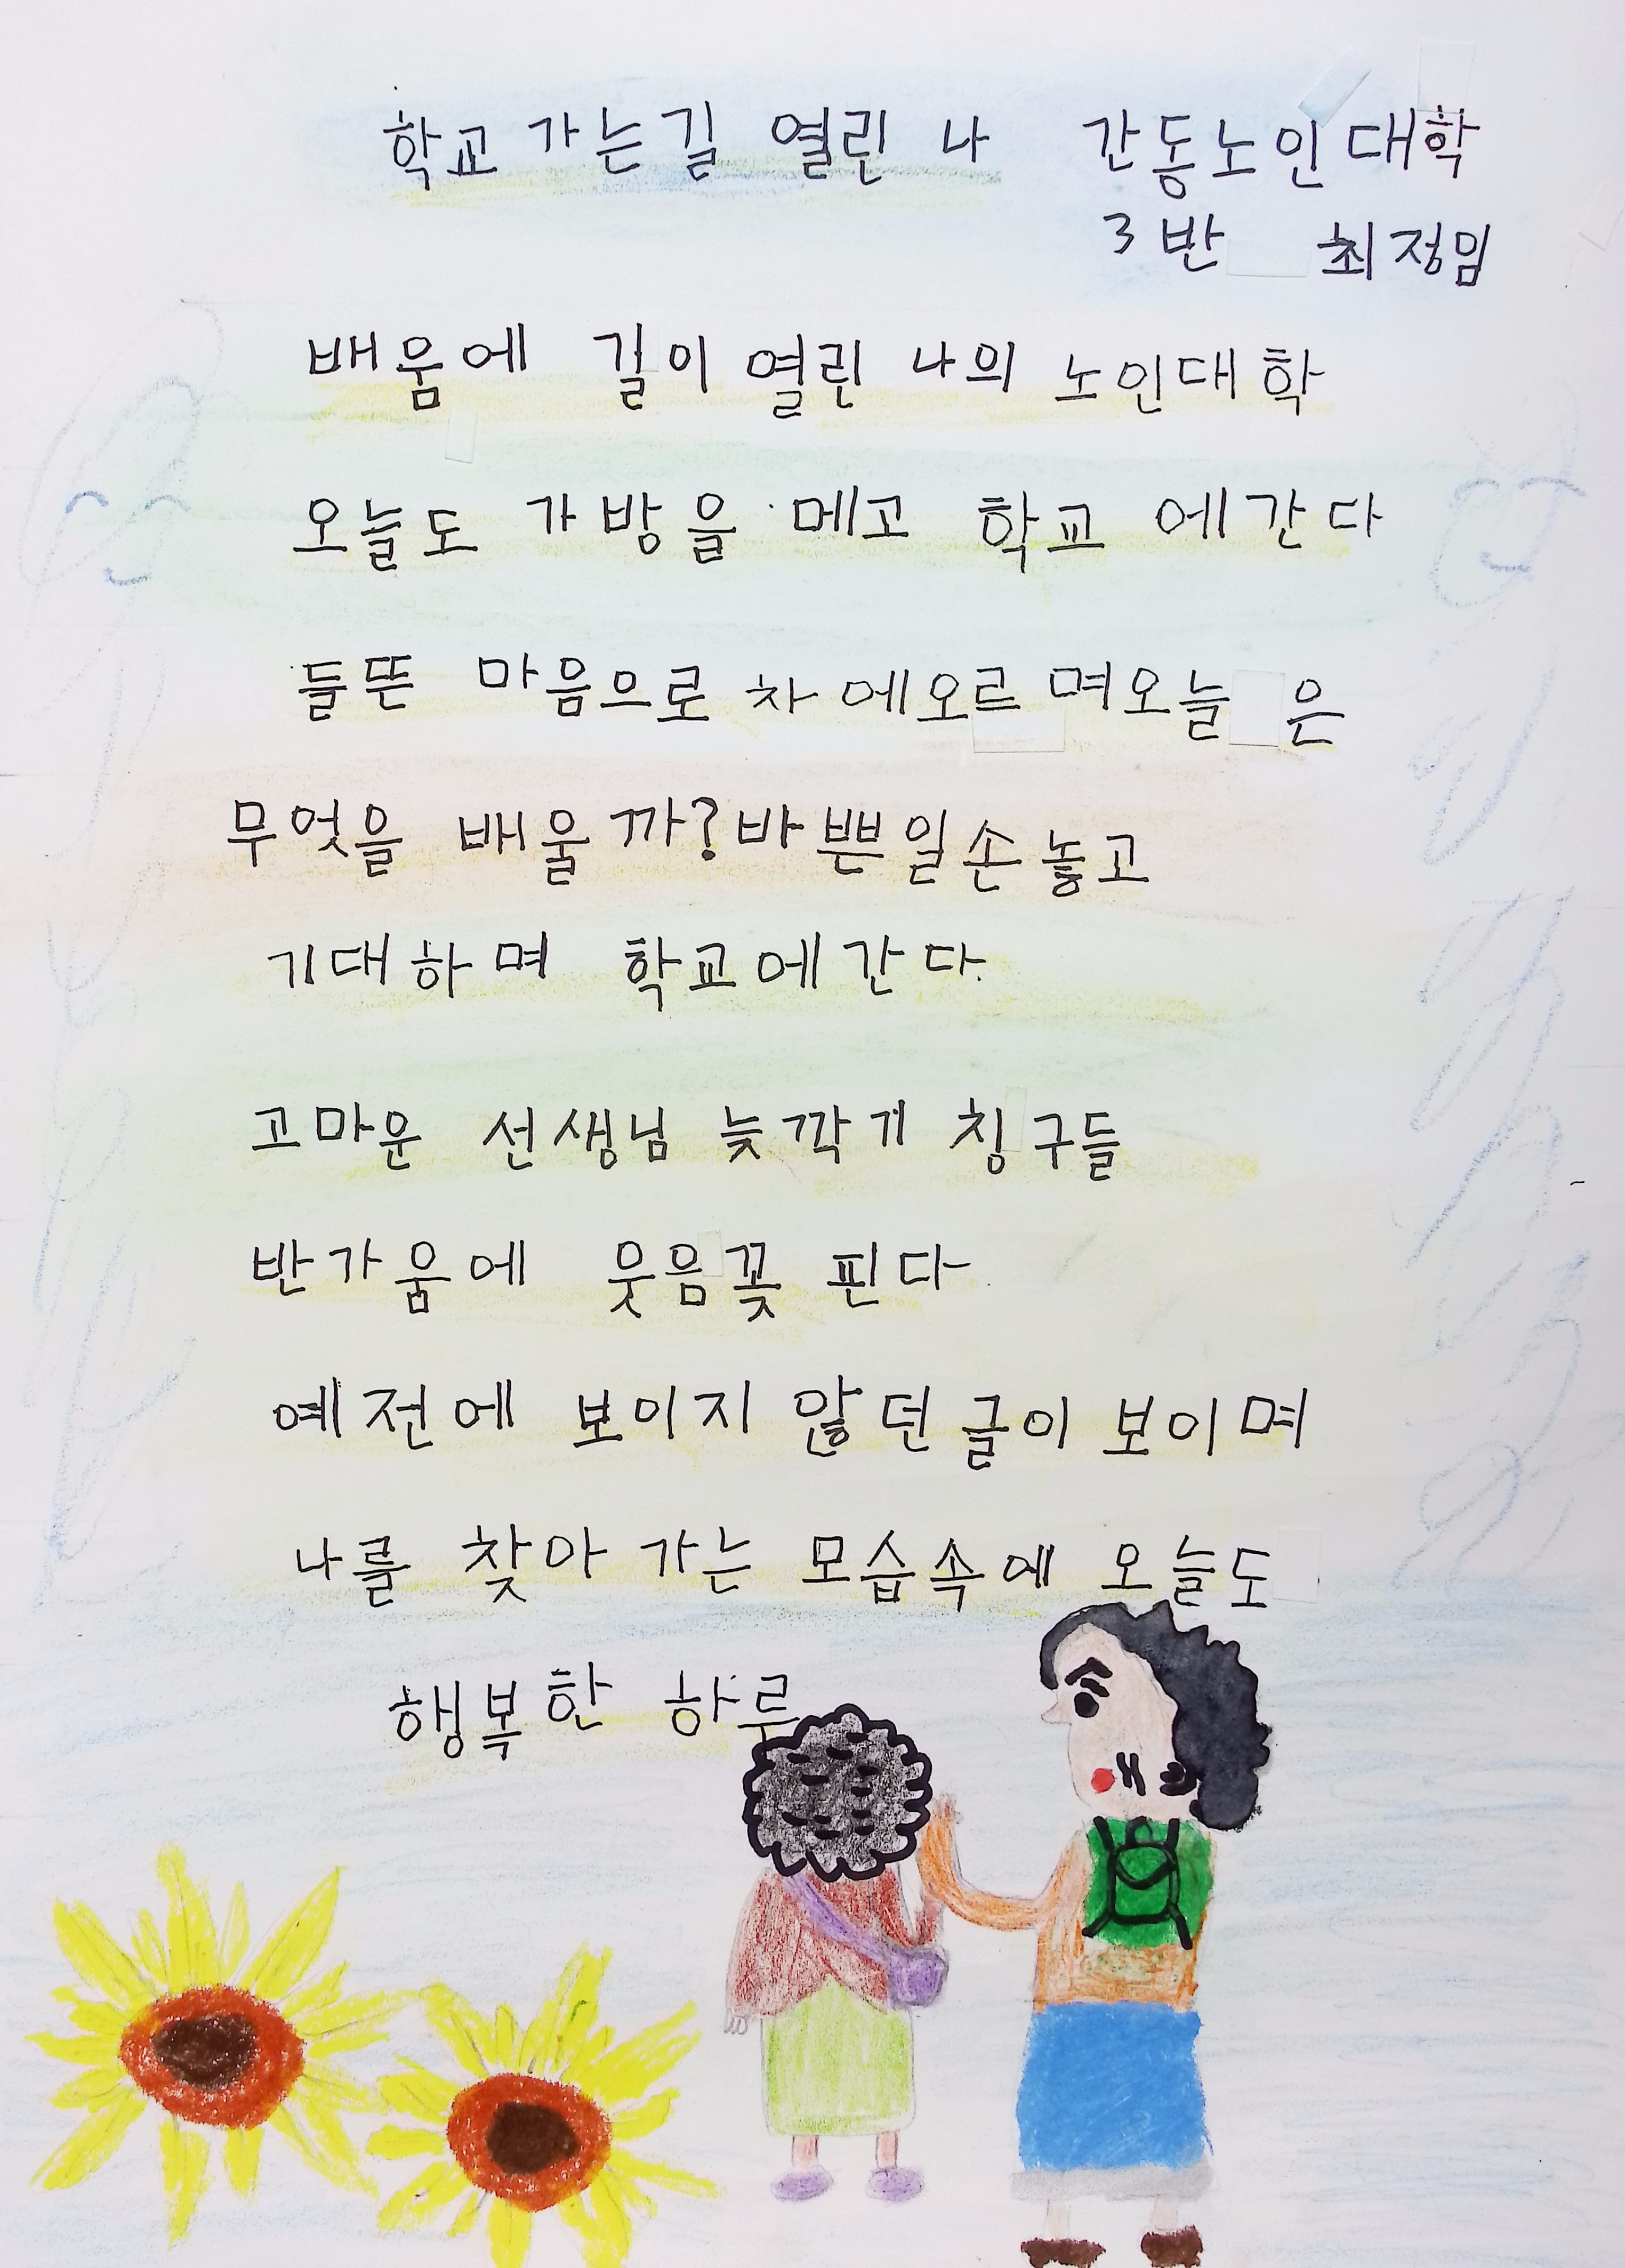 학교 가는길 열린 나 간동노인대학
3반 최정임
배움에 길이 열린 나의 노인대학
오늘도 가방을 메고 학교에간다
들뜬 마음으로 차에오르며오늘은
무엇을 배울까?바쁜일손놓고
기대하며 학교에간다.
고마운 선생님 늦깍기 칭구들
반가움에 웃음꽃 핀다.
예전에 보이지 않던글이 보이며
나를 찾아가는 모습속에 오늘도
행복한 하루